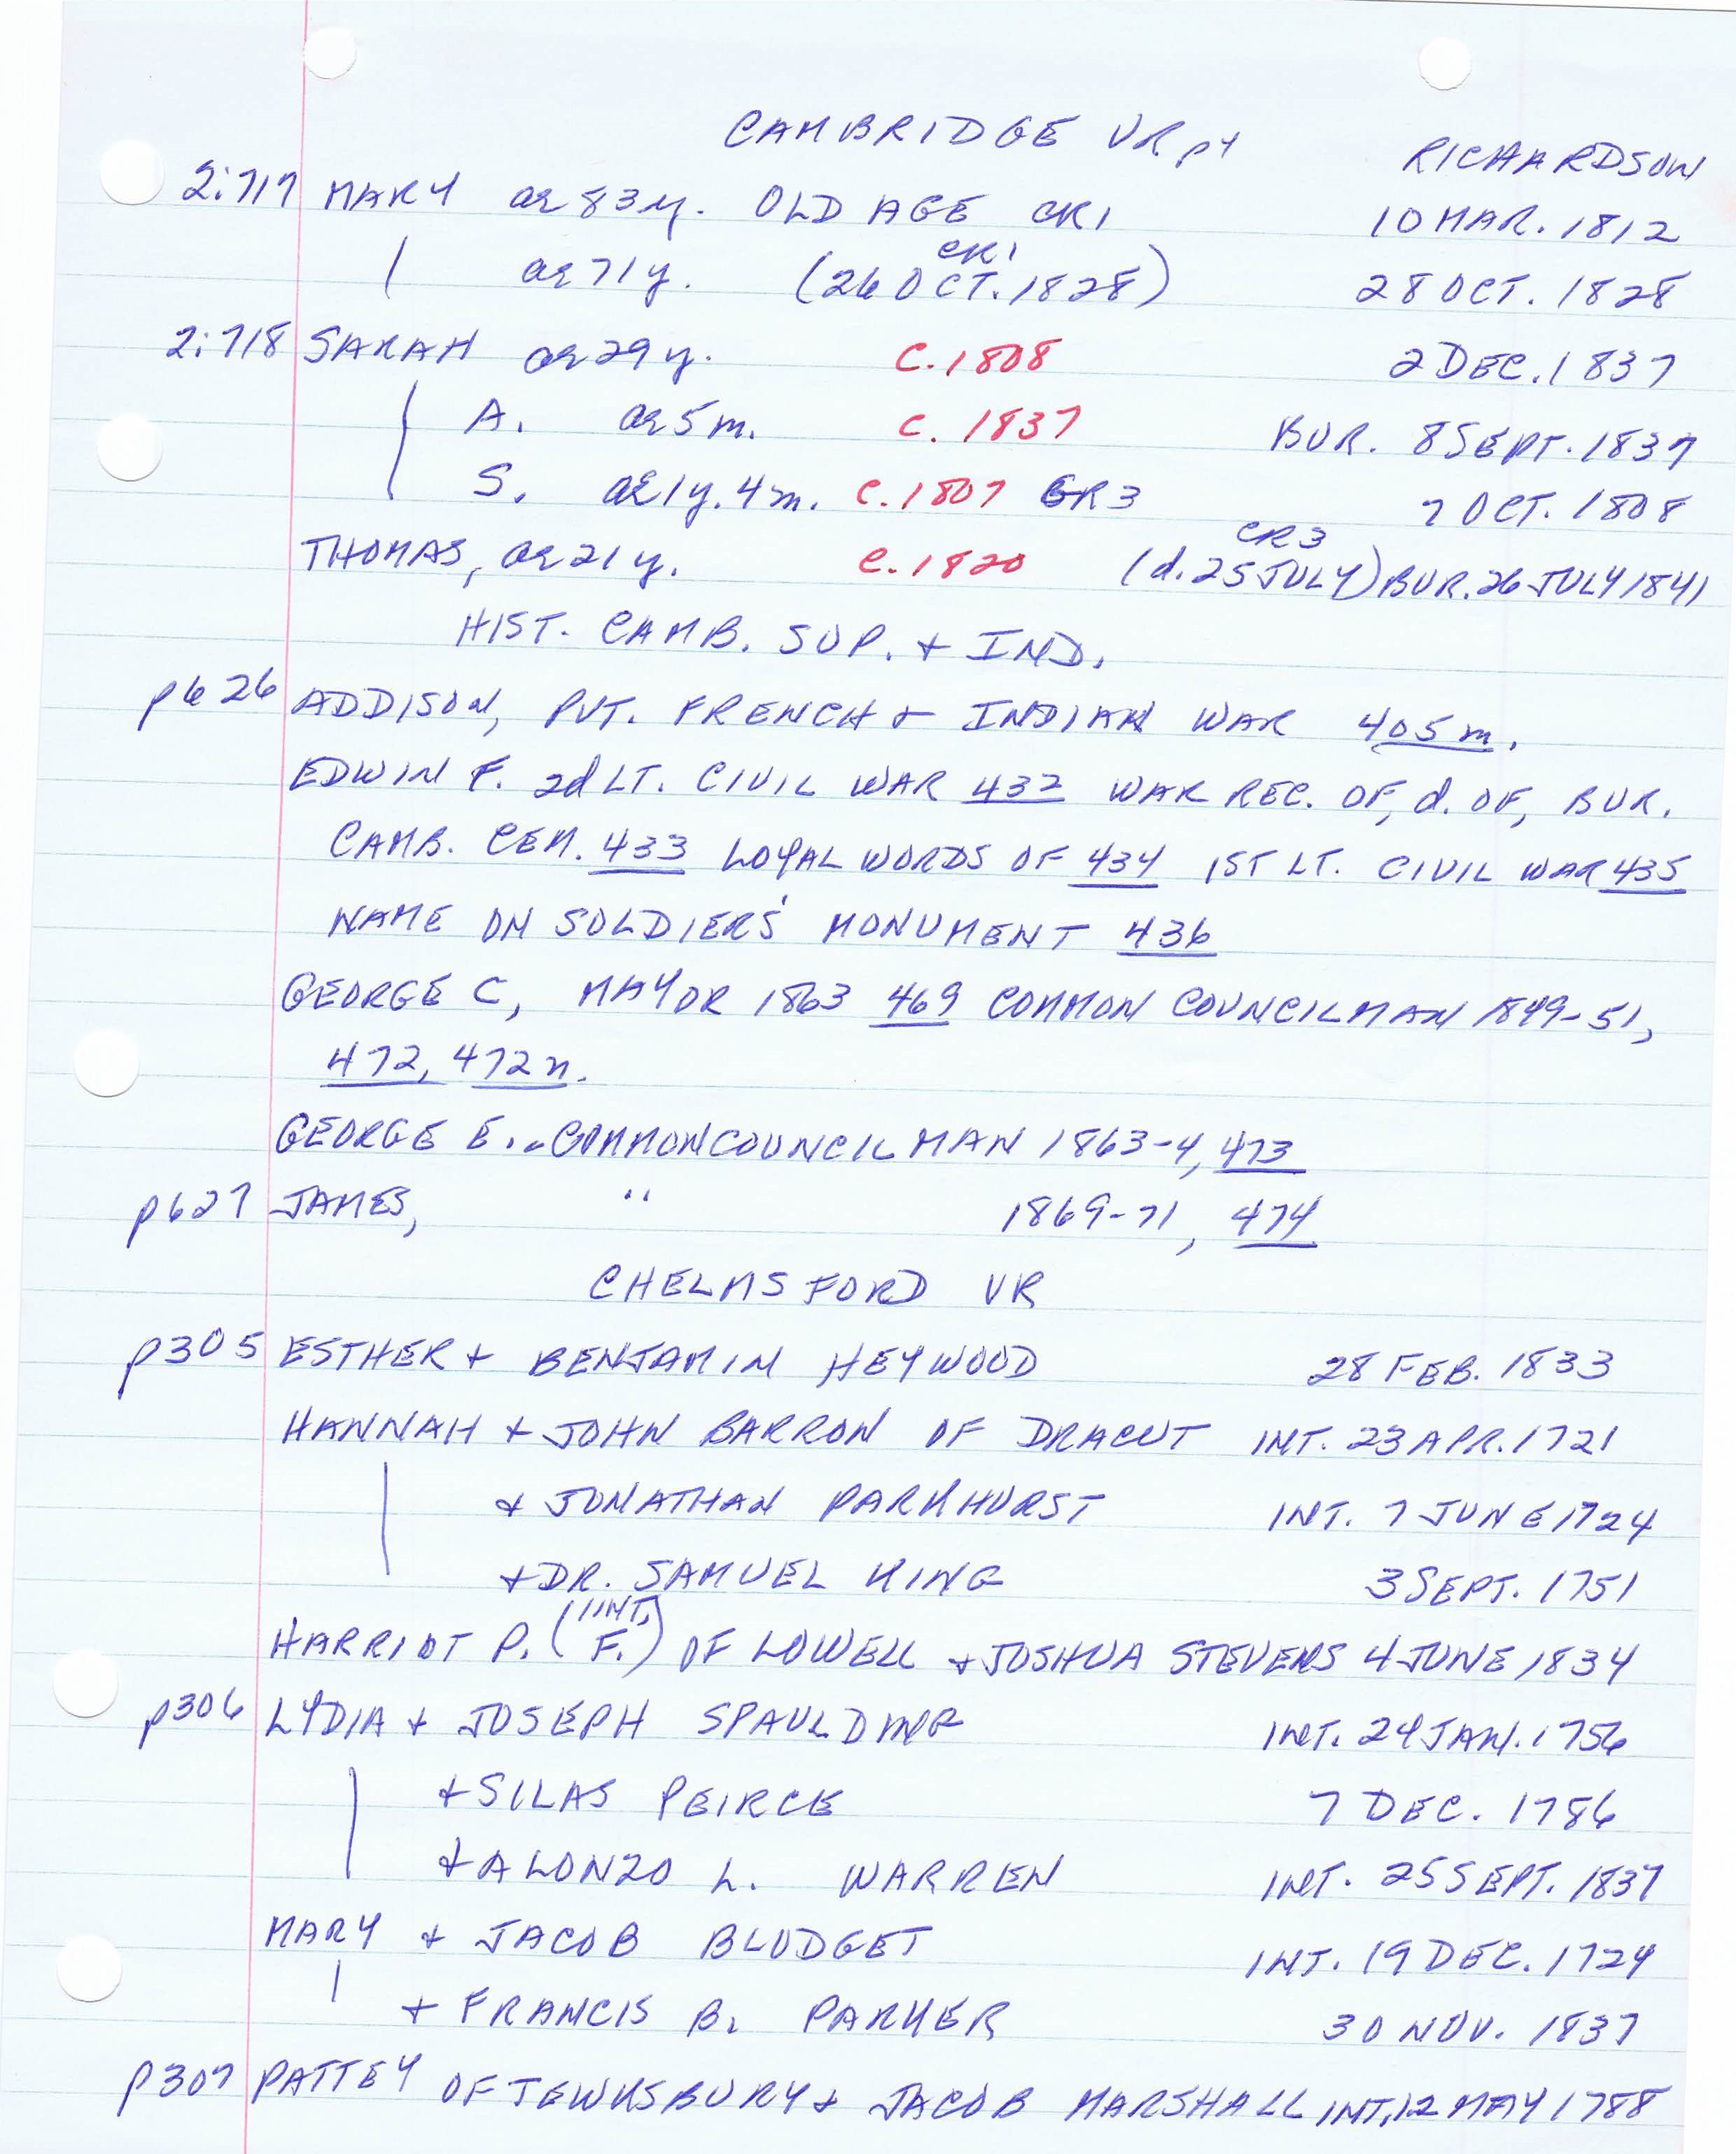 CAMBRIDGE VR pt RICHARDSON
2:717 MARY ae 83y. OLD AGE CR1 10 MAR. 1812
ae 71y. (26 OCT. 1828) CR1 28 OCT. 1828
2:718 SARAH ae 29y. C. 1808 2 DEC. 1837
A. ae 5m. C. 1837 BUR. 8 SEPT. 1837
S. ae 1y. 4m. C. 1807 GR3 7 OCT. 1808
THOMAS, ae 21y. C. 1820 (d. 25 JULY) CR3 BUR. 26 JULY 1841
HIST. CAMB. SUP. + IND.
p626 ADDISON, PVT. FRENCH + INDIAN WAR 405m.
EDWIN F. 2d LT. CIVIL WAR 432 WAR REC. OF, d. OF, BUR.
CAMB. CEM. 433 LOYAL WORDS OF 434 1ST LT. CIVIL WAR 435
NAME ON SOLDIER'S MONUMENT 436
GEORGE C, MAYOR 1863 469 COMMON COUNCILMAN 1849-51,
472, 472n.
GEORGE E. COMMON COUNCILMAN 1863-4, 473
p627 JAMES, " 1869-71, 474
CHELMSFORD VR
p305 ESTHER + BENJAMIN HEYWOOD 28 FEB. 1833
HANNAH + JOHN BARRON OF DRACUT INT. 23 APR. 1721
+ JONATHAN PARKHURST INT. 7 JUNE 1724
+ DR. SAMUEL KING 3 SEPT. 1751
HARRIOT P. (INT. F.) OF LOWELL + JOSHUA STEVENS 4 JUNE 1834
p306 LYDIA + JOSEPH SPAULDING INT. 24 JAN. 1756
+ SILAS PEIRCE 7 DEC. 1786
+ ALONZO L. WARREN INT. 25 SEPT. 1837
MARY + JACOB BLODGET INT. 19 DEC. 1724
+ FRANCIS B. PARKER 30 NOV. 1837
p307 PATTEY OF TEWKSBURY + JACOB MARSHALL INT. 12 MAY 1788